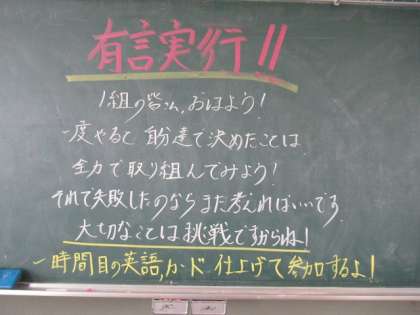 有言実行!!
1組の皆さん、おはよう!
一度やると自分達で決めたことは
全力で取り組んでみよう!
それで失敗したのならまた考えればいいです
大切なことは挑戦ですからね!
一時間目の英語,カード仕上げて参加するよ!